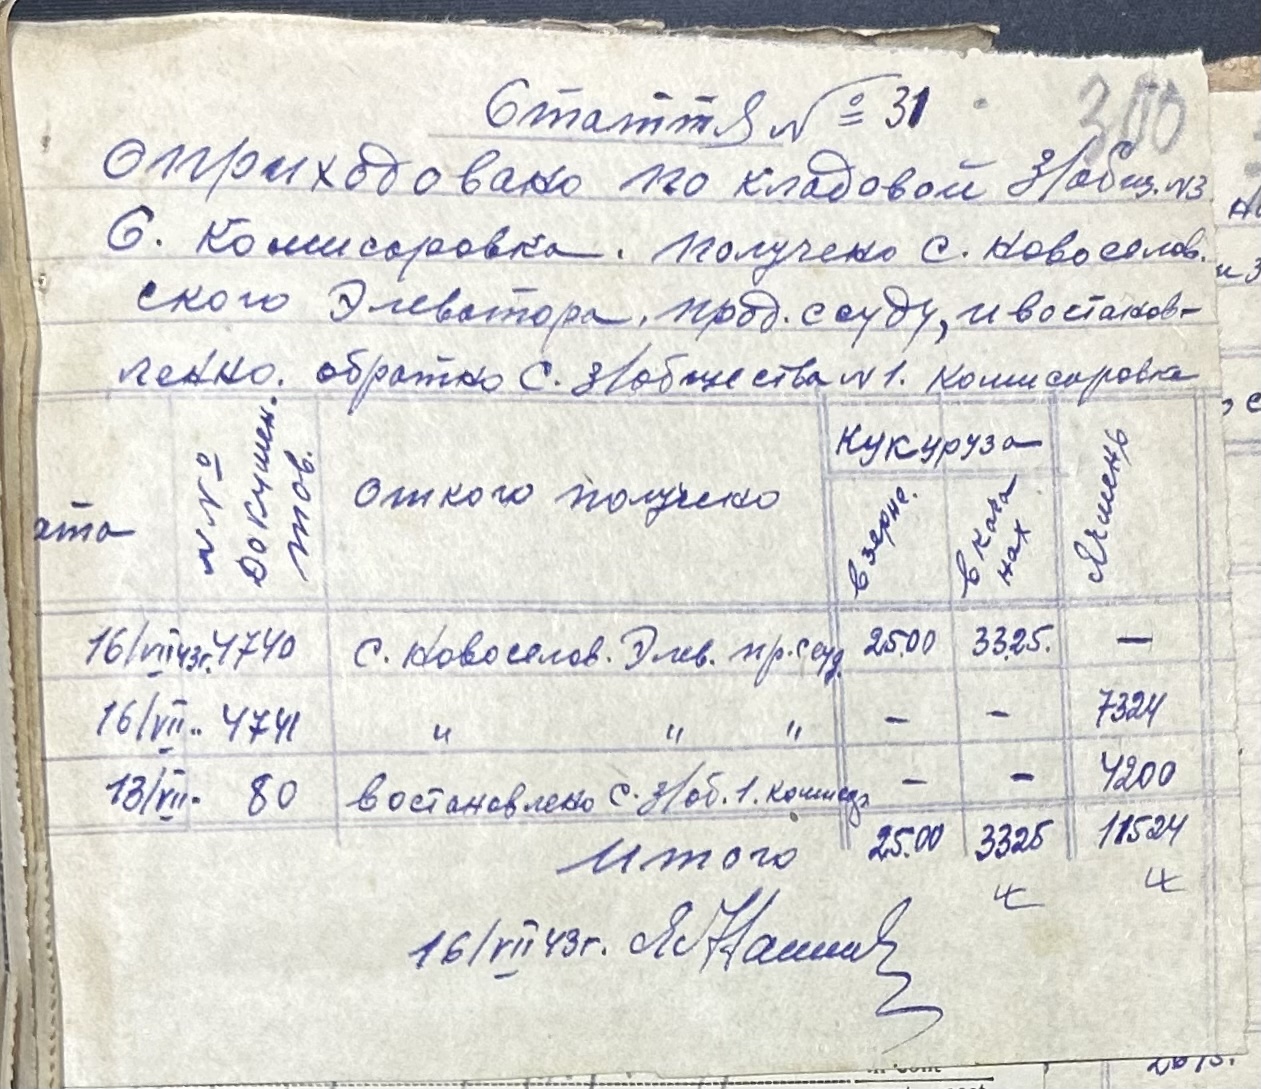 Статття № 31
300
Оприходовано по кладовой З/общ. №3
С. Комисаровка. Получено С. Новоселов.
ского Элеватора, прод. ссуду, и востанов-
ленно. обратно С. З/общества №1. Комисаровка
ата
№№ Документов.
От кого получено
Кукуруза
в зерне.
в кача
нах
Ячмень
16/VII 43г. 4740 С. Новоселов. Элев. пр. ссуд. 25.00 3325. —
16/VII.. 4741 " " " - - 7324
13/VII. 80 Востановлено С. З/об. 1. - - 4200
Итого 25.00 3325 11524
16/VII 43г.